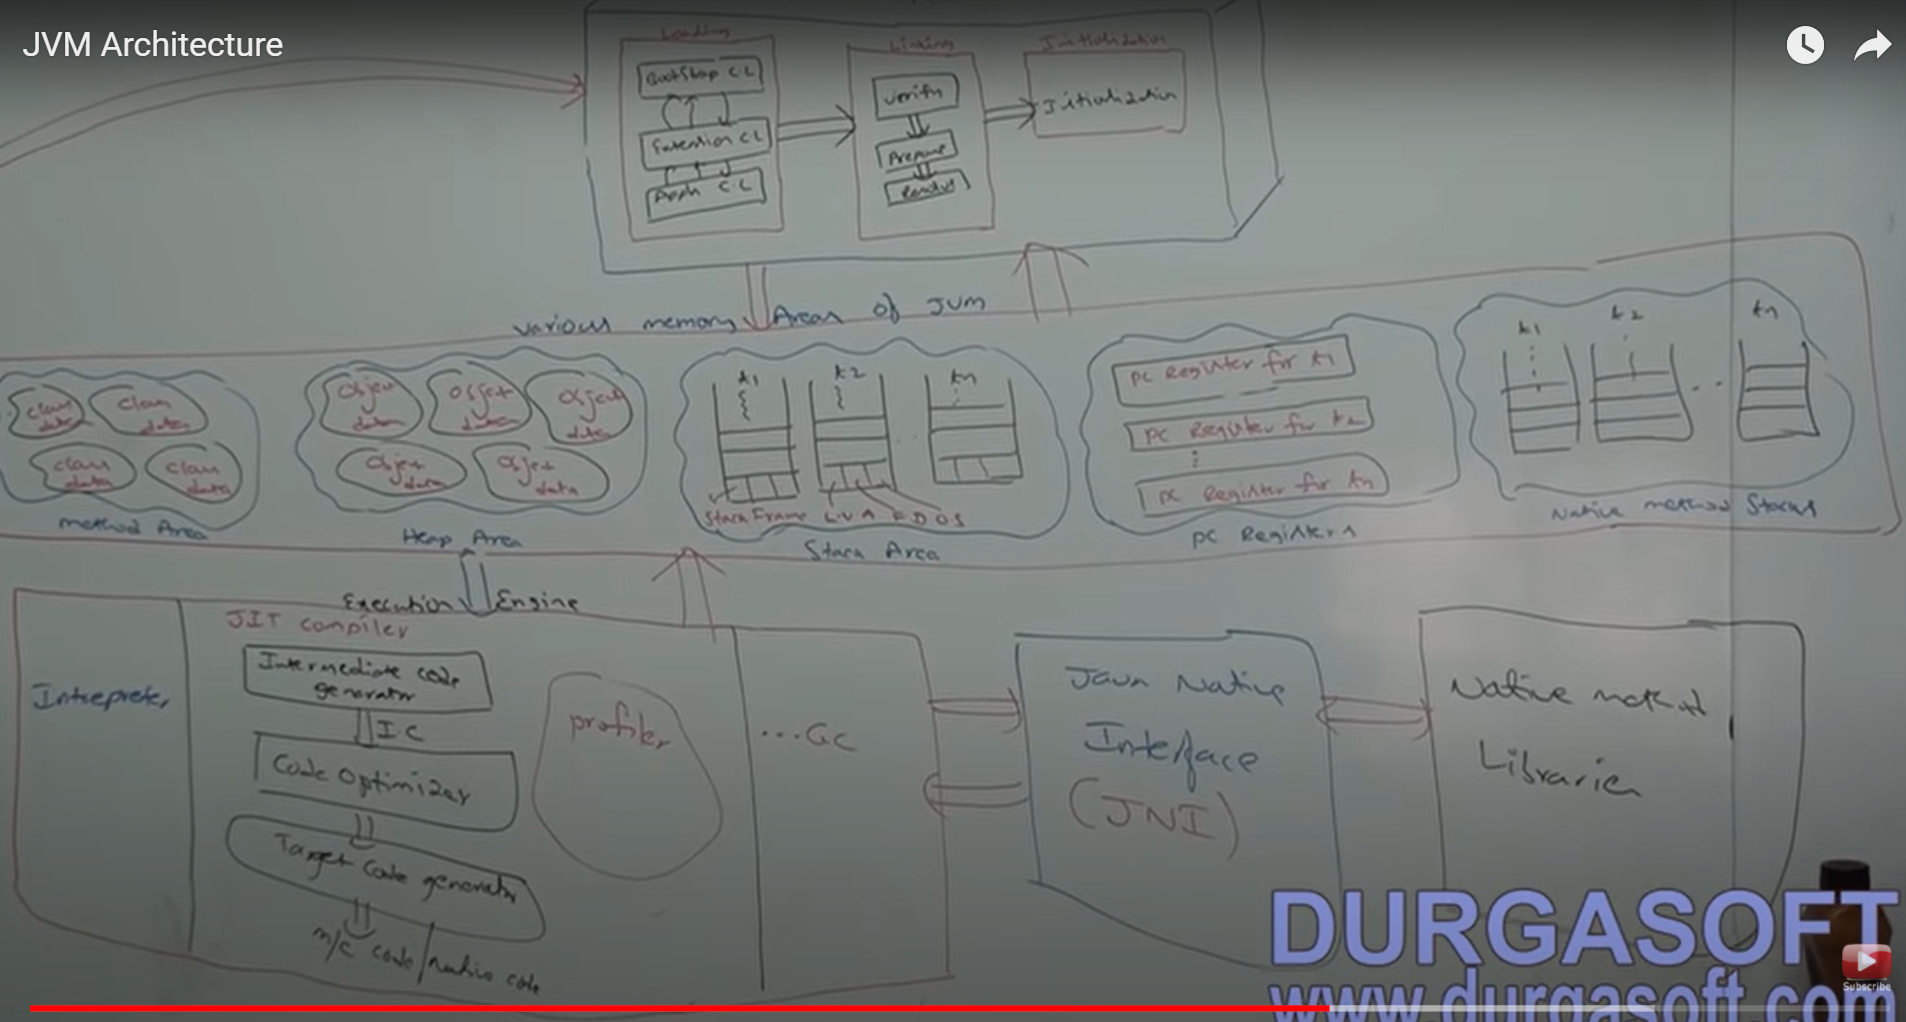 JVM Architecture
Loading
Linking
Initialization
BootStrap C.L
Extention C.L
Appln C.L
Verify
Prepare
Resolve
Initialization
Various memory Areas of JVM
Class data
Class data
Class data
Class data
method Area
Object data
Object data
Object data
Object data
Object data
Heap Area
t1
t2
tn
Stack Frame
L.V.A
F.D
O.S
Stack Area
PC Register for t1
PC Register for t2
PC Register for tn
PC Registers
t1
t2
tn
Native method Stacks
Execution Engine
Intrepreter
JIT compiler
Intermediate code
generator
I.C
Code Optimizer
Target code generator
m/c code/native code
profiler
...GC
Java Native
Interface
(JNI)
Native method
Libraries
DURGASOFT
www.durgasoft.com
Subscribe